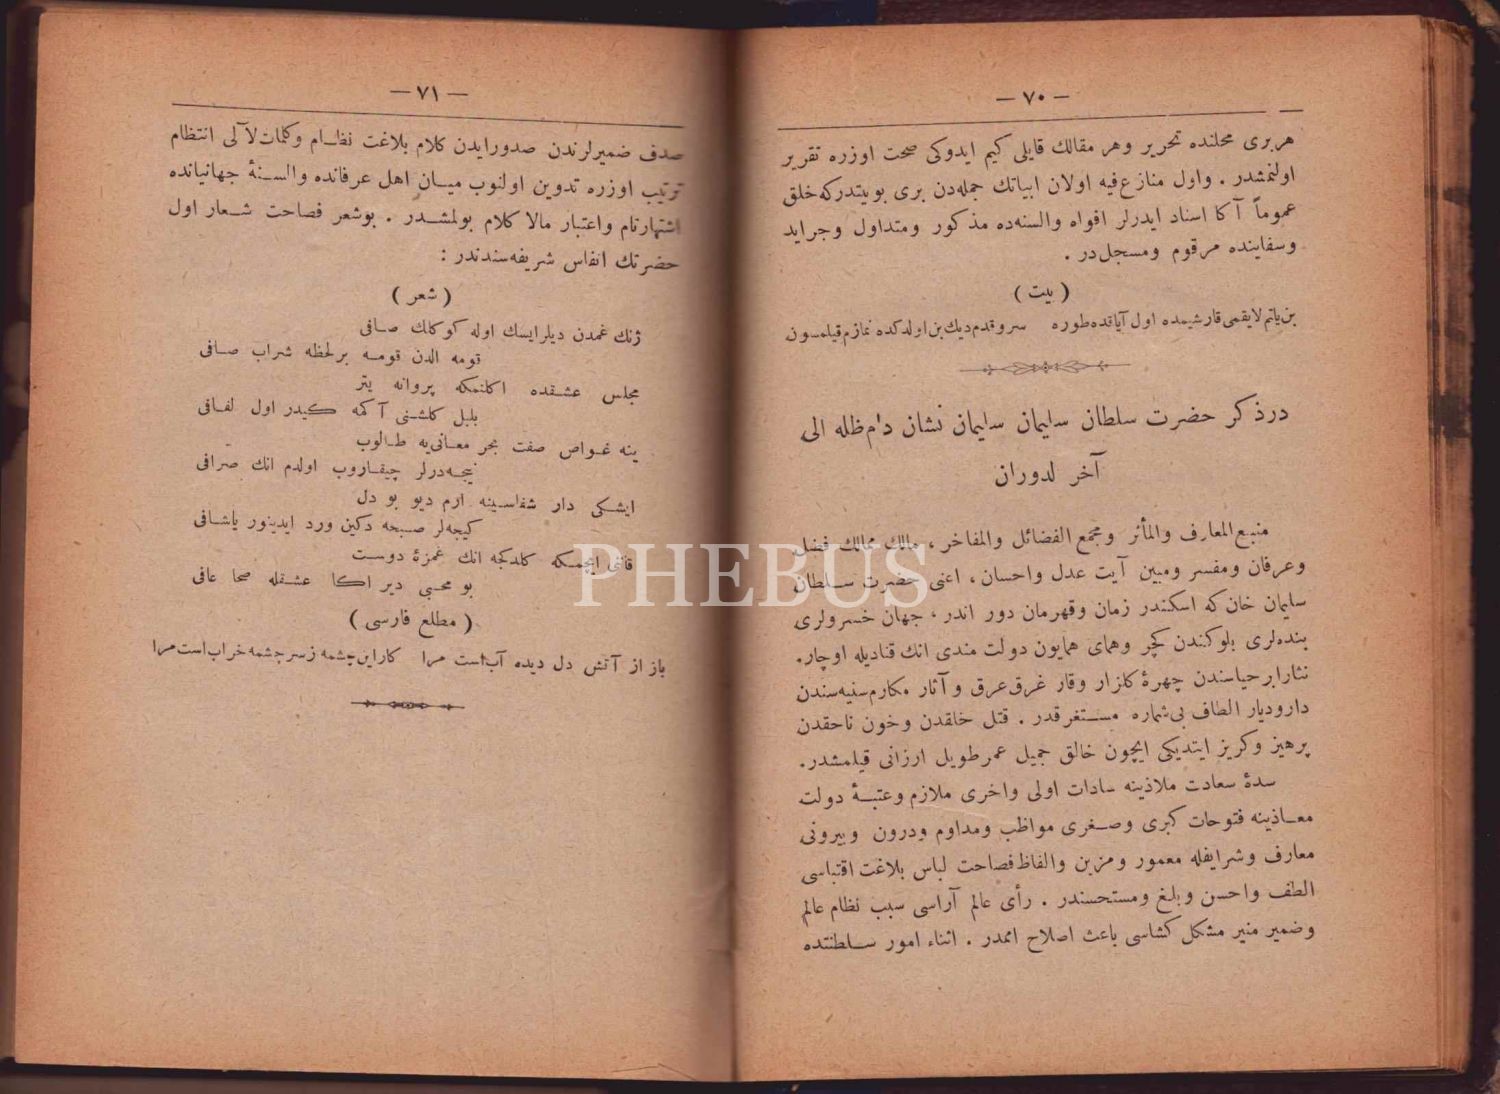 — ٧٠ —
هربری محلنده تحریر وهر مقالك قایلی کیم ایدوکی صحت اوزره تقریر
اولنمشدر . واول منازع‌فیه اولان ابیاتك جمله‌دن بری بوبیتدرکه خلق
عموماً آکا اسناد ایدرلر افواه والسنه‌ده مذکور ومتداول وجراید
وسفاینده مرقوم ومسجل‌در .
( بیت )
بن یاتم لایقمی قارشیمده اول آیاقده طوره سروقدم دیك بن اولدکده نمازم قیلمسون
درذکر حضرت سلطان سلیمان سلیمان نشان دام ظله الی
آخر لدوران
منبع المعارف والمأثر ومجمع الفضائل والمفاخر ، مالك ممالك فضل
وعرفان ومفسر ومبین آیت عدل واحسان ، اعنی حضرت سلطان
سلیمان خان که اسکندر زمان وقهرمان دور اندر ، جهان خسرولری
بنده‌لری بلوکندن کچر وهمای همایون دولت مندی انك قنادیله اوچار.
نثار ابر حیاسندن چهرۀ کلزار وقار غرق عرق وآثار مکارم سنیه‌سندن
داردیار الطاف بی‌شماره مستغرقدر . قتل خلقدن وخون ناحقدن
پرهیز وکریز ایتدیکی ایچون خالق جمیل عمر طویل ارزانی قیلمشدر.
سدۀ سعادت ملاذینه سادات اولی واخری ملازم وعتبۀ دولت
معاذینه فتوحات کبری وصغری مواظب ومداوم ودرون وبیرونی
معارف وشرایفله معمور ومزین والفاظ فصاحت لباس بلاغت اقتباسی
الطف واحسن وبلغ ومستحسندر . رأی عالم آراسی سبب نظام عالم
وضمیر منیر مشکل کشاسی باعث اصلاح اممدر . اثناء امور سلطنتده
— ٧١ —
صدف ضمیرلرندن صدور ایدن کلام بلاغت نظام وکلمات لآلی انتظام
ترتیب اوزره تدوین اولنوب میان اهل عرفانده والسنۀ جهانیانده
اشتهار تام واعتبار مالا کلام بولمشدر . بوشعر فصاحت شعار اول
حضرتك انفاس شریفه‌سندندر :
( شعر )
ژنك غمدن دیلرایسك اوله کوکلك صافی
قومه الدن قومه برلحظه شراب صافی
مجلس عشقده اکلنمکه پروانه یتر
بلبل کلشنی آکمه کیدر اول لفافی
ینه غواص صفت بحر معانی‌یه طالوب
نیجه‌درلر چیقاروب اولدم انك صرافی
ایشکی دار شفاسینه ارم دیو بو دل
کیجه‌لر صبحه دکین ورد ایدینور یاشافی
قانی ایچمکه کلدکجه انك غمزۀ دوست
بو محبی دیر اکا عشقله صحا عافی
( مطلع فارسی )
باز از آتش دل دیده آب است مرا کار این چشمه ز سرچشمه خراب است مرا
PHEBUS